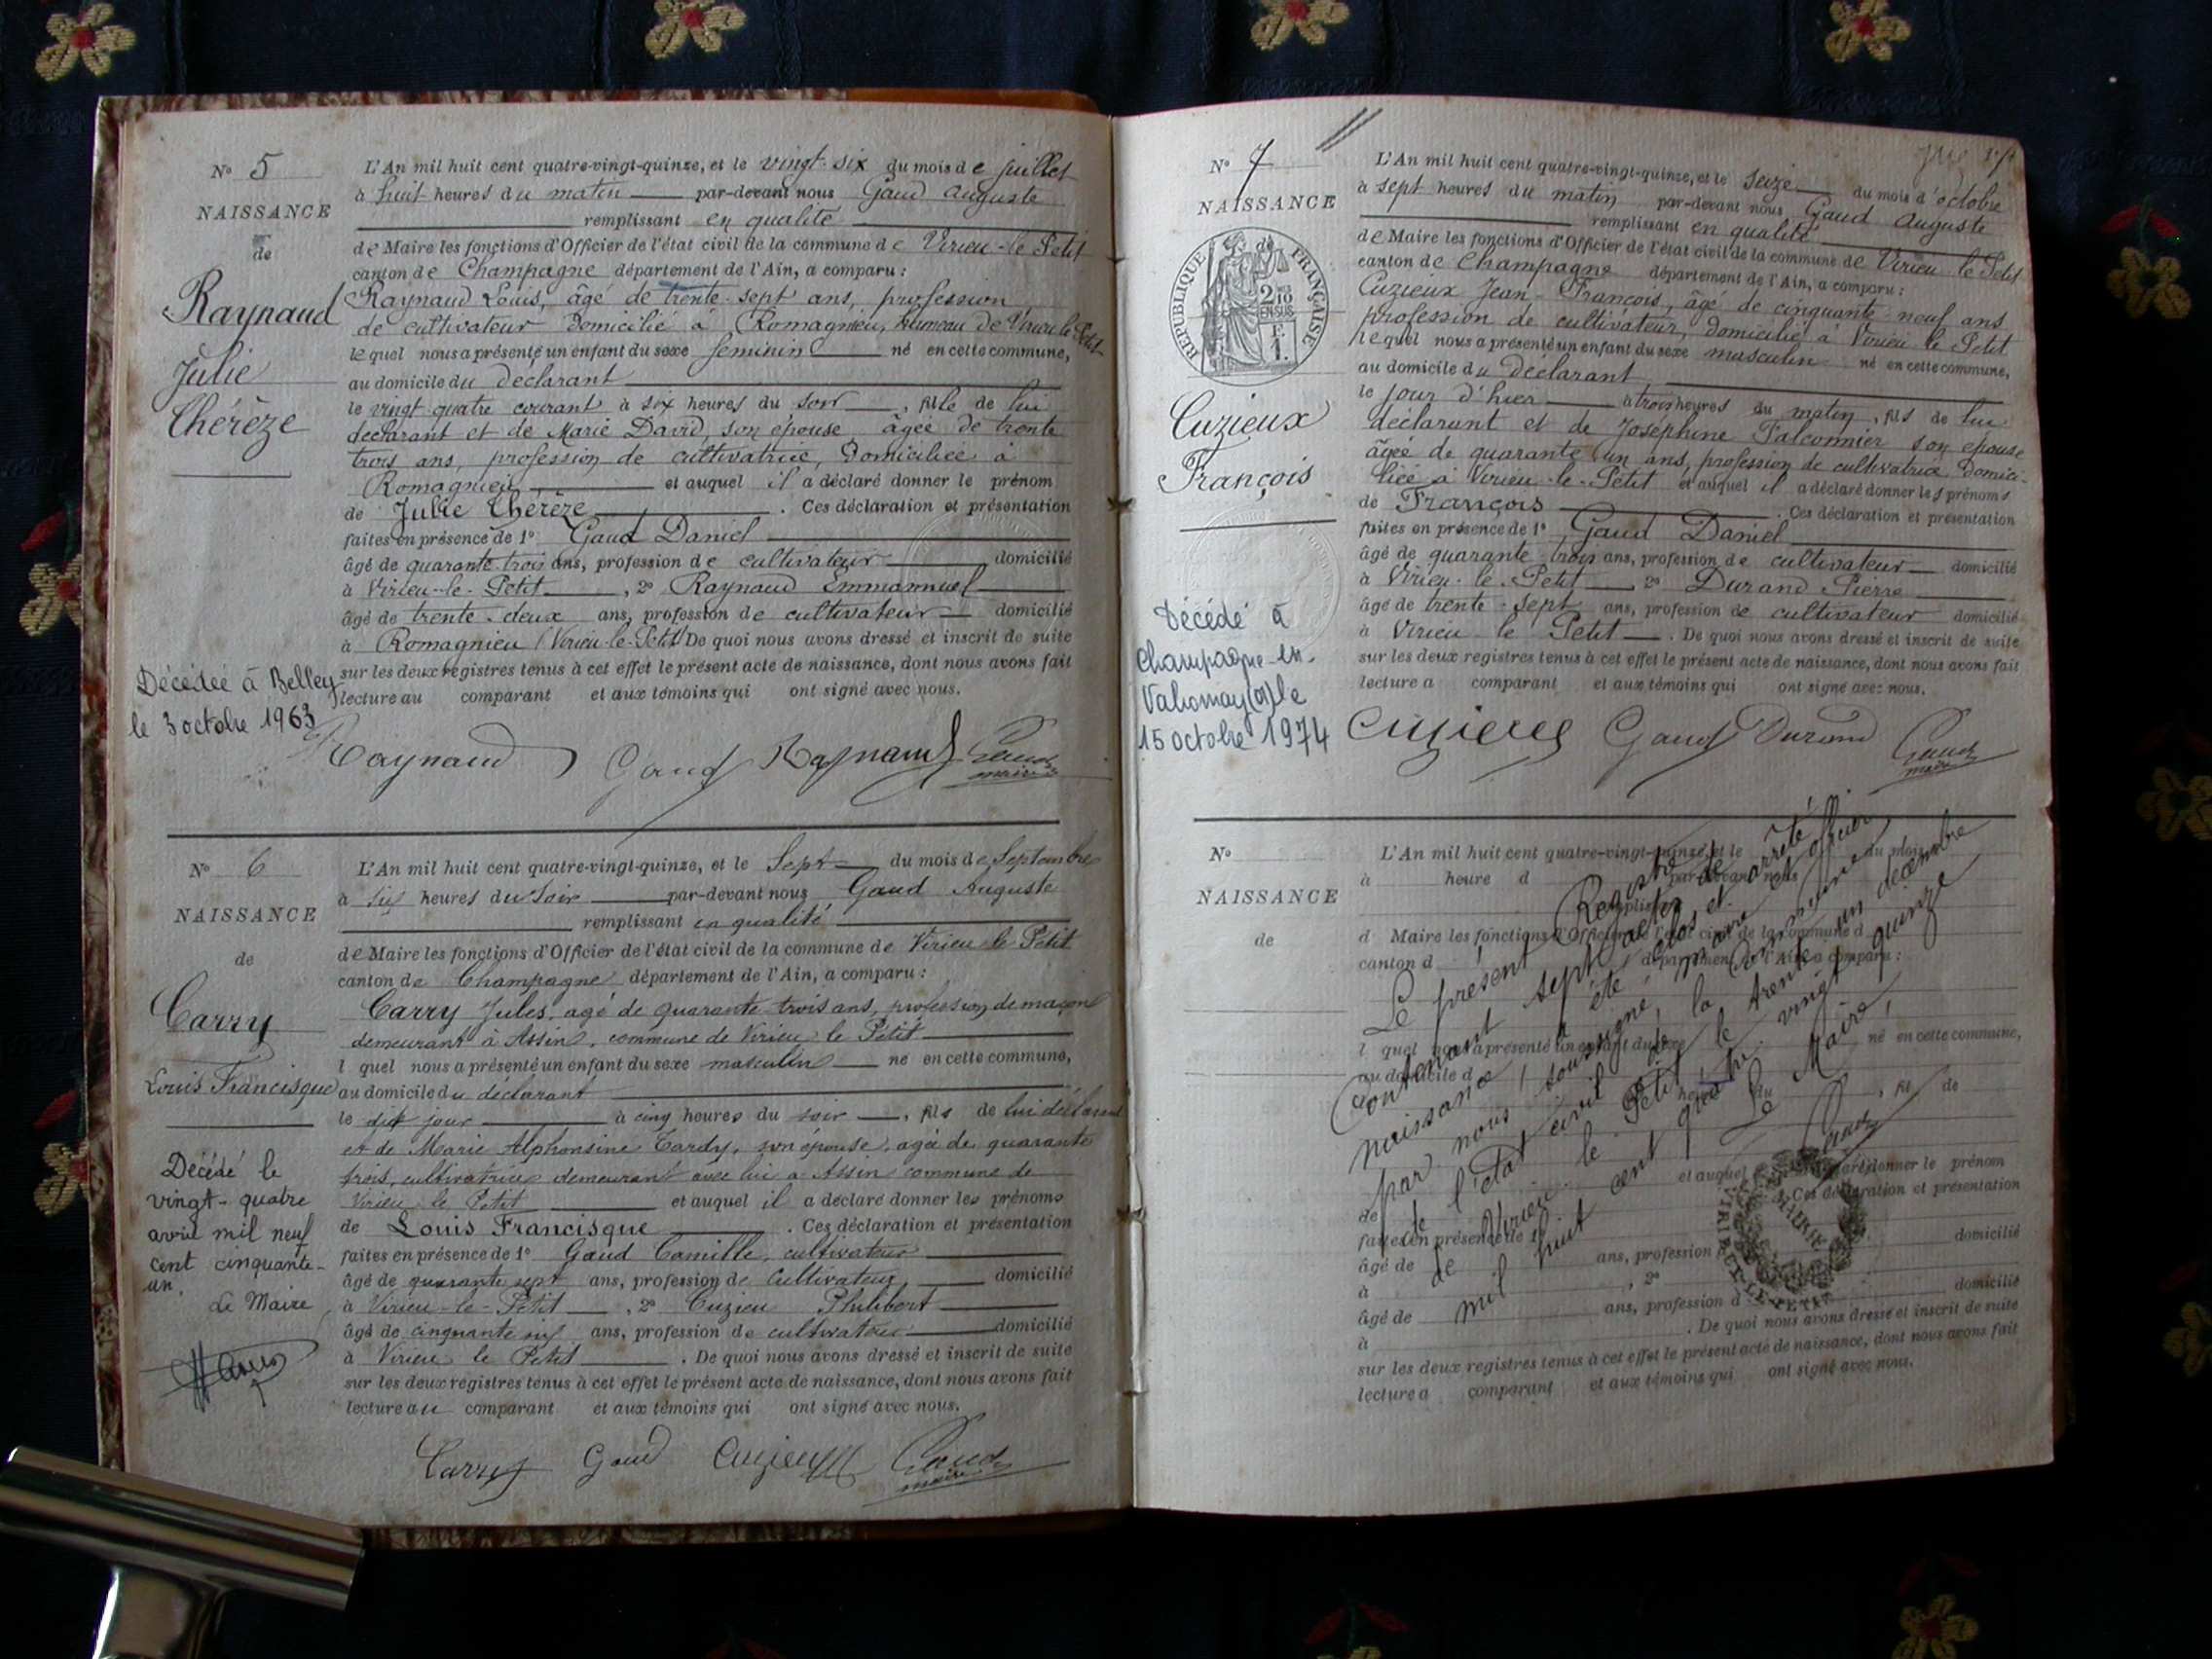 N° 5
NAISSANCE
de
Raynaud
Julie
Thérèze
Décédée à Belley
le 3 octobre 1963
L'An mil huit cent quatre-vingt-quinze, et le vingt-six du mois de juillet
à huit heures du matin par-devant nous Gaud Auguste
remplissant en qualité
de Maire les fonctions d'Officier de l'état civil de la commune de Virieu-le-Petit
canton de Champagne département de l'Ain, a comparu :
Raynaud Louis, âgé de trente-sept ans, profession
de cultivateur domicilié à Romagnieu, hameau de Virieu le Petit
le quel nous a présenté un enfant du sexe féminin né en cette commune,
au domicile du déclarant
le vingt-quatre courant à six heures du soir, fille de lui
déclarant et de Marie David, son épouse âgée de trente
trois ans, profession de cultivatrice, domiciliée à
Romagnieu et auquel il a déclaré donner le prénom
de Julie Thérèze. Ces déclaration et présentation
faites en présence de 1° Gaud Daniel
âgé de quarante-trois ans, profession de cultivateur domicilié
à Virieu-le-Petit, 2° Raynaud Emmannuel
âgé de trente-deux ans, profession de cultivateur domicilié
à Romagnieu (Virieu-le-Petit) De quoi nous avons dressé et inscrit de suite
sur les deux registres tenus à cet effet le présent acte de naissance, dont nous avons fait
lecture au comparant et aux témoins qui ont signé avec nous.
Raynaud Gaud Raynaud Gaud
maire
N° 6
NAISSANCE
de
Carry
Louis Francisque
Décédé le
vingt-quatre
avril mil neuf
cent cinquante-
un.
Le Maire
L'An mil huit cent quatre-vingt-quinze, et le Sept du mois de Septembre
à six heures du Soir par-devant nous Gaud Auguste
remplissant en qualité
de Maire les fonctions d'Officier de l'état civil de la commune de Virieu le Petit
canton de Champagne département de l'Ain, a comparu :
Carry Jules, agé de quarante-trois ans, profession de maçon
demeurant à Assin, commune de Virieu le Petit
l quel nous a présenté un enfant du sexe masculin né en cette commune,
au domicile du déclarant
le dit jour à cinq heures du soir, fils de lui déclarant
et de Marie Alphonsine Tardy, son épouse, agée de quarante
trois, cultivatrice demeurant avec lui a Assin commune de
Virieu le Petit et auquel il a déclaré donner les prénoms
de Louis Francisque. Ces déclaration et présentation
faites en présence de 1° Gaud Camille, cultivateur
âgé de quarante sept ans, profession de Cultivateur, domicilié
à Virieu-le-Petit, 2° Cuzieu Philibert
âgé de cinquante six ans, profession de cultivateur domicilié
à Virieu le Petit. De quoi nous avons dressé et inscrit de suite
sur les deux registres tenus à cet effet le présent acte de naissance, dont nous avons fait
lecture au comparant et aux témoins qui ont signé avec nous.
Carry Gaud Cuzieux Gaud
maire
N° 7
NAISSANCE
de
REPUBLIQUE FRANÇAISE
2 10
EN SUS
F.
1.
Cuzieux
François
Décédé à
Champagne-en-
Valromey (01) le
15 octobre 1974
L'An mil huit cent quatre-vingt-quinze, et le seize du mois d'octobre
à sept heures du matin par-devant nous Gaud Auguste
remplissant en qualité
de Maire les fonctions d'Officier de l'état civil de la commune de Virieu le Petit
canton de Champagne département de l'Ain, a comparu :
Cuzieux Jean-François, âgé de cinquante neuf ans
profession de cultivateur, domicilié à Virieu le Petit
lequel nous a présenté un enfant du sexe masculin né en cette commune,
au domicile du déclarant
le jour d'hier à trois heures du matin, fils de lui
déclarant et de Joséphine Falconnier son épouse
âgée de quarante un ans, profession de cultivatrice domici-
liée à Virieu-le-Petit et auquel il a déclaré donner les prénoms
de François. Ces déclaration et présentation
faites en présence de 1° Gaud Daniel
âgé de quarante-trois ans, profession de cultivateur domicilié
à Virieu-le-Petit 2° Durand Pierre
âgé de trente-sept ans, profession de cultivateur domicilié
à Virieu-le Petit. De quoi nous avons dressé et inscrit de suite
sur les deux registres tenus à cet effet le présent acte de naissance, dont nous avons fait
lecture a comparant et aux témoins qui ont signé avec nous.
Cuzieux Gaud Durand Gaud
maire
N°
NAISSANCE
de
L'An mil huit cent quatre-vingt-quinze, et le du mois
à heure d par-devant nous
remplissant
d Maire les fonctions d'Officier de l'état civil de la commune d
canton d département de l'Ain, a comparu :
l quel nous a présenté un enfant du sexe né en cette commune,
au domicile d
heure du , fil de
et auquel a déclaré donner le prénom
de . Ces déclaration et présentation
faites en présence de 1°
âgé de ans, profession d domicilié
à , 2°
âgé de ans, profession d domicilié
à . De quoi nous avons dressé et inscrit de suite
sur les deux registres tenus à cet effet le présent acte de naissance, dont nous avons fait
lecture a comparant et aux témoins qui ont signé avec nous.
Le présent Registre
Contenant sept actes de
naissance a été clos et arrêté
par nous soussigné, maire et officier
de l'état civil de la commune
de Virieu le Petit le trente un décembre
mil huit cent quatre vingt quinze
Le Maire,
Gaud
MAIRIE
VIRIEU-LE-PETIT